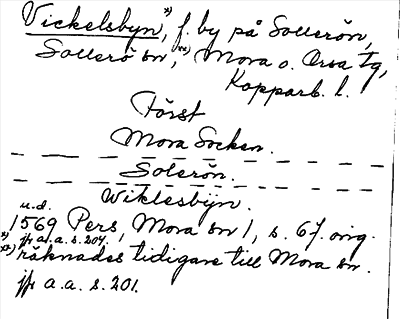 Vickelsbyn,*) f. by på Sollerön,
Sollerö sn,**) Mora o. Orsa tg,
Kopparb. l.
Först
Mora Socken.
Solerön.
Wiklesbÿn.
u.d.
1569 Pers, Mora sn 1, s. 67. orig.
*) jfr a.a. s. 204.
**) räknades tidigare till Mora sn.
jfr a.a. s. 201.